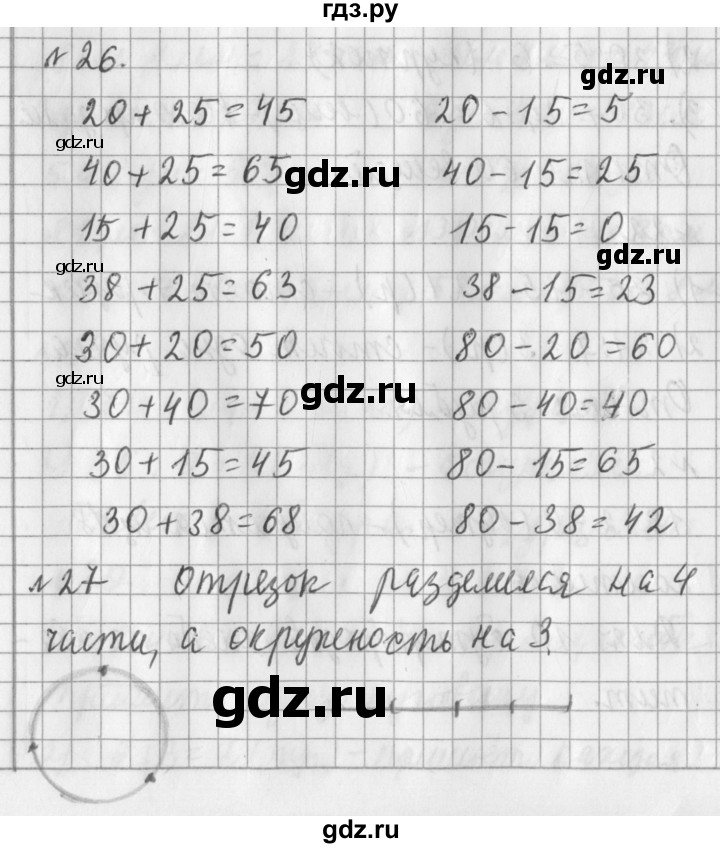 гдз.ру
№26.
gdz.ru
20+25=45 20-15=5
gdz.ru
40+25=65 40-15=25
gdz.ru
15+25=40 15-15=0
gdz.ru
gdz.ru
38+25=63 38-15=23
30+20=50 80-20=60
gdz.ru
gdz.ru
30+40=70 80-40=40
30+15=45 80-15=65
30+38=68 80-38=42
№27 Отрезок разделился на 4
части, а окружность на 3.
gdz.ru
gdz.ru